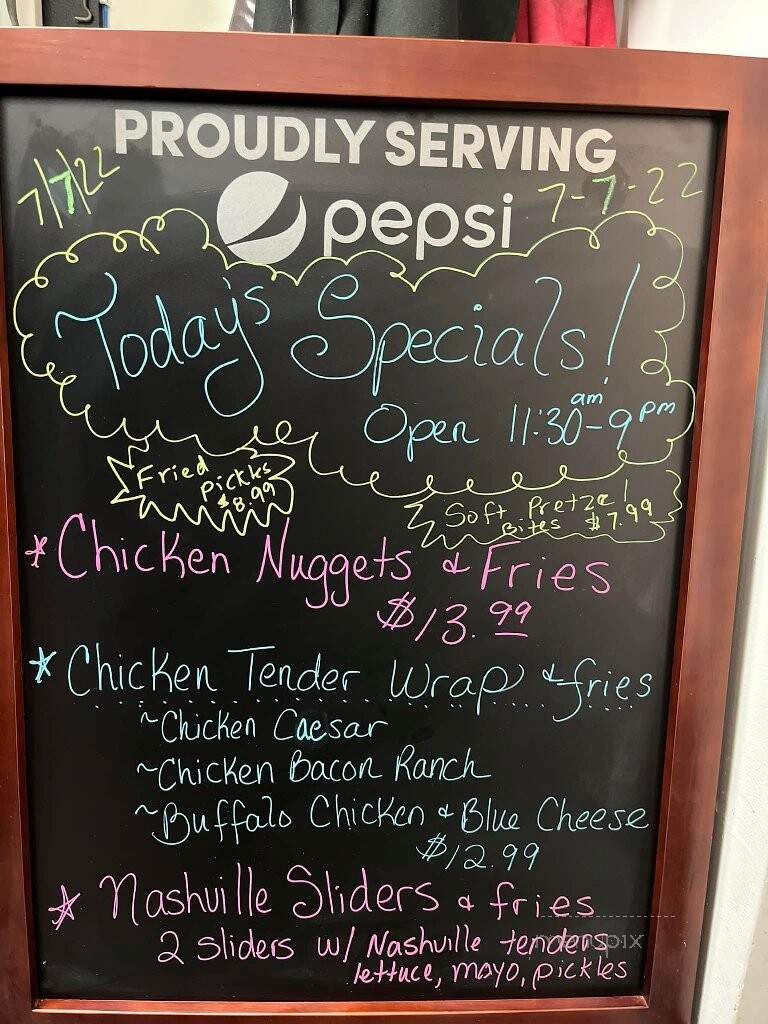 PROUDLY SERVING
pepsi
7/7/22
7-7-22
Today's Specials!
Open 11:30am-9pm
Fried
Pickles
$8.99
Soft Pretzel
Bites $7.99
* Chicken Nuggets & Fries
$13.99
* Chicken Tender Wrap & fries
~Chicken Caesar
~Chicken Bacon Ranch
~Buffalo Chicken & Blue Cheese
$12.99
* Nashville Sliders & fries
2 sliders w/ Nashville tenders
lettuce, mayo, pickles